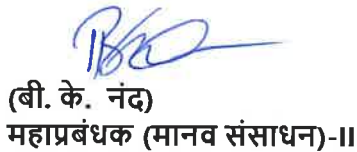 (बी. के. नंद)
महाप्रबंधक (मानव संसाधन)-II